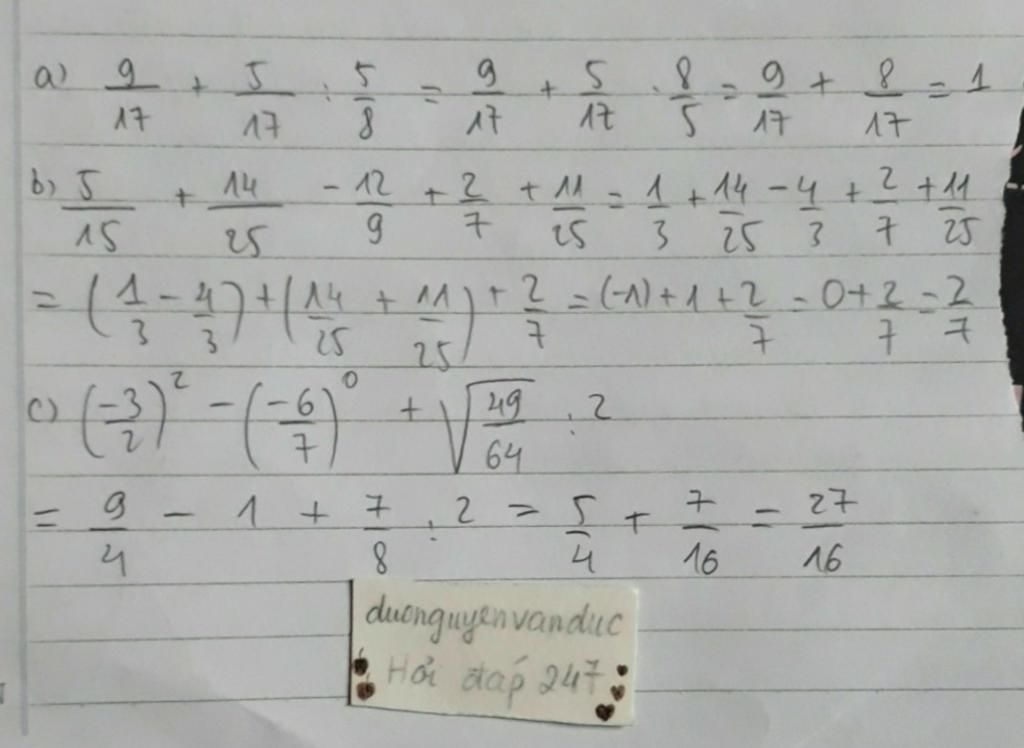 a) 9/17 + 5/17 : 5/8 = 9/17 + 5/17 . 8/5 = 9/17 + 8/17 = 1
b) 5/15 + 14/25 - 12/9 + 2/7 + 11/25 = 1/3 + 14/25 - 4/3 + 2/7 + 11/25
= (1/3 - 4/3) + (14/25 + 11/25) + 2/7 = (-1) + 1 + 2/7 = 0 + 2/7 = 2/7
c) (-3/2)² - (-6/7)⁰ + √(49/64) : 2
= 9/4 - 1 + 7/8 : 2 = 5/4 + 7/16 = 27/16
duonguyenvanduc
Hỏi đáp 247